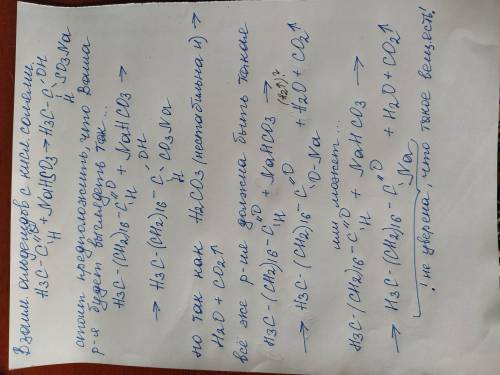 Взаим. альдегидов с кисл. солями.
H3C-C(=O)-H + NaHSO3 → H3C-C(OH)(H)-SO3Na
стоит предположить, что Ваша
р-я будет выглядеть так...
H3C-(CH2)16-C(=O)-H + NaHCO3 →
→ H3C-(CH2)16-C(OH)(H)-CO3Na
но так как H2CO3 (нестабильна и) →
H2O + CO2↑
всё же р-ие должна быть такая
H3C-(CH2)16-C(=O)-H + NaHCO3 → (H2O)?
→ H3C-(CH2)16-C(=O)-O-Na + H2O + CO2↑
или может...
H3C-(CH2)16-C(=O)-H + NaHCO3 →
→ H3C-(CH2)16-C(=O)-Na + H2O + CO2↑
! не уверена, что такое веществ!